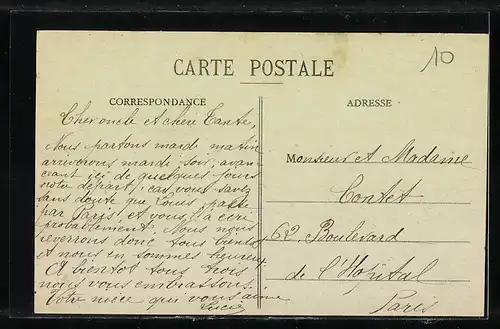 10
CARTE POSTALE
CORRESPONDANCE
ADRESSE
Cher oncle et chère Tante,
Nous partons mardi matin
arriverons mardi soir, avan
çant ici de quelques jours
notre départ, car vous savez
sans doute que Louis passe
par Paris et vous a écrit
probablement. Nous nous
reverrons donc tous bientôt
et nous en sommes heureux
A bientôt tous trois
nous vous embrassons.
Votre nièce qui vous aime
Lucie
Monsieur et Madame
Contet
62 Boulevard
de l'Hôpital
Paris